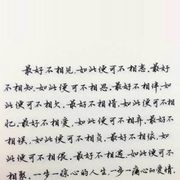 最好不相见,如此便可不相恋.最好
不相知,如此便可不相思.最好不相伴,如
此便可不相欠.最好不相惜,如此便可不相
忆.最好不相爱,如此便可不相弃.最好不
相误,如此便可不相负.最好不相依,如
此便可不相偎.最好不相遇,如此便可不
相聚.一步一惊心的人生,一步一痛心的爱情.